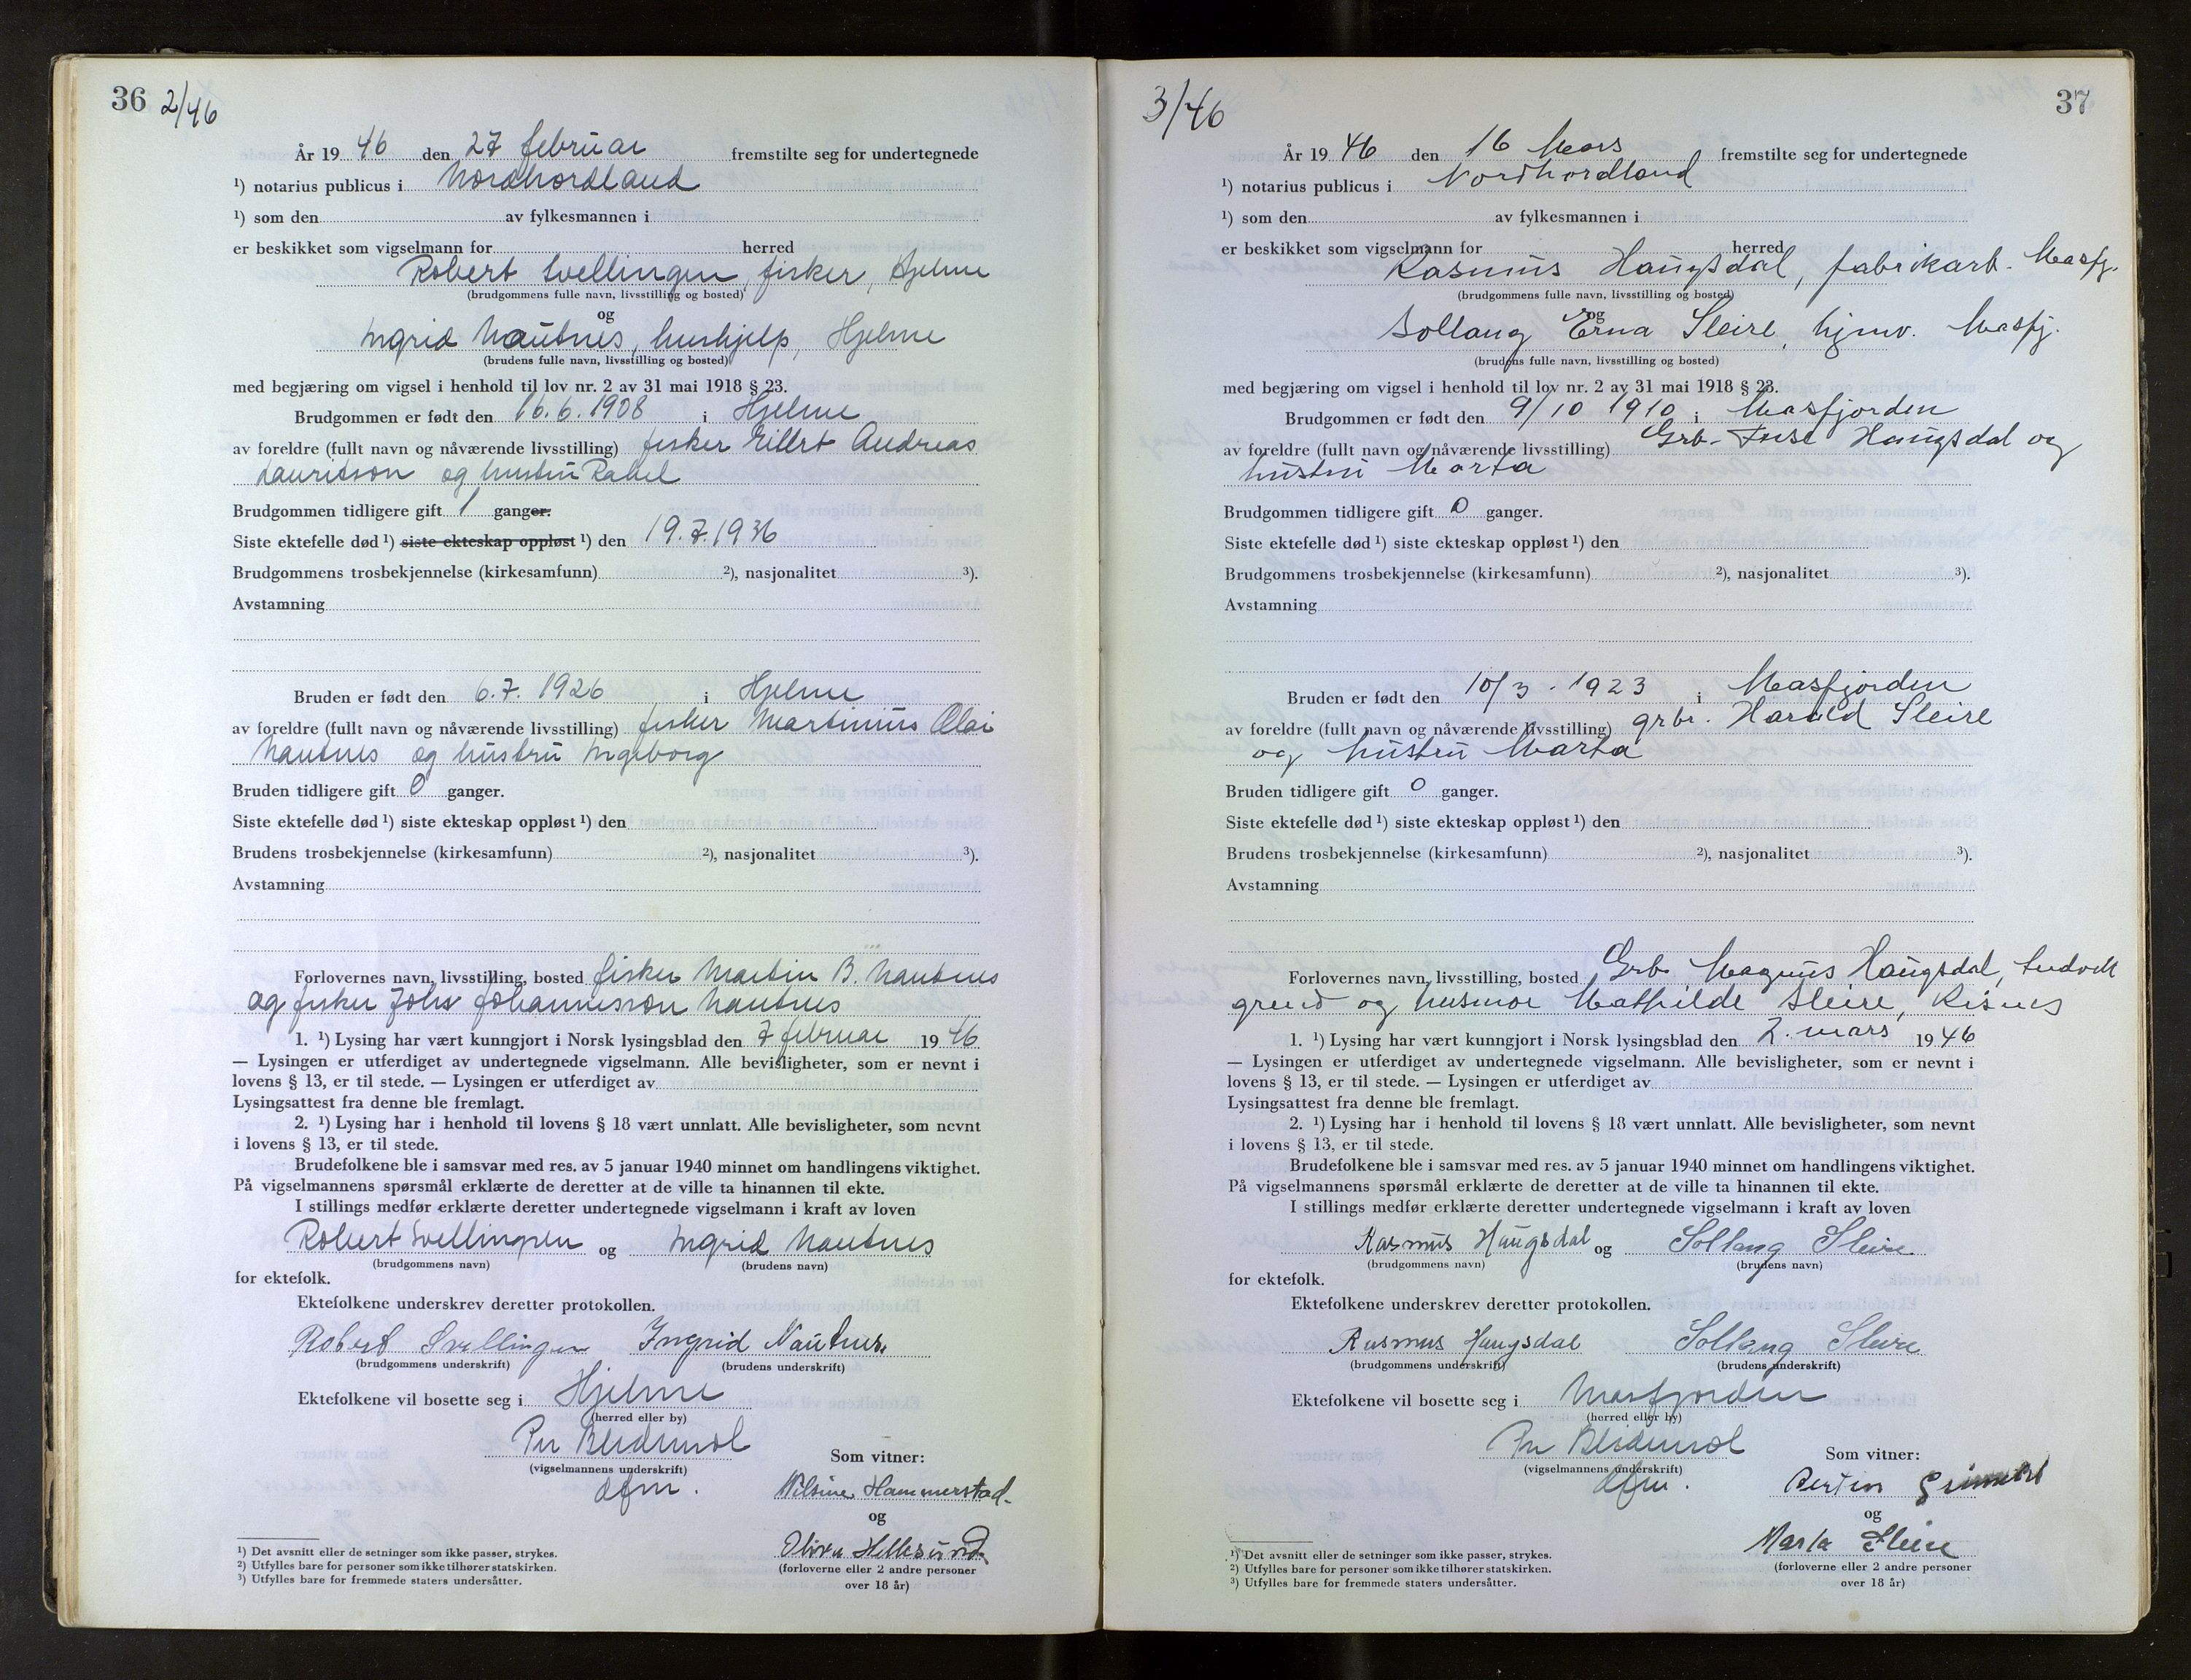 36 2/46
År 19 46 den 27 februar fremstilte seg for undertegnede
¹) notarius publicus i Nordhordland
¹) som den av fylkesmannen i
er beskikket som vigselmann for herred
Robert Svellingen, fisker, Hjelme
(brudgommens fulle navn, livsstilling og bosted)
og
Ingrid Nautnes, hushjelp, Hjelme
(brudens fulle navn, livsstilling og bosted)
med begjæring om vigsel i henhold til lov nr. 2 av 31 mai 1918 § 23.
Brudgommen er født den 16.6.1908 i Hjelme
av foreldre (fullt navn og nåværende livsstilling) fisker Eillert Andreas
Lauritson og hustru Rakel
Brudgommen tidligere gift 1 ganger.
Siste ektefelle død ¹) siste ekteskap oppløst ¹) den 19.7.1936
Brudgommens trosbekjennelse (kirkesamfunn) ²), nasjonalitet ³).
Avstamning
Bruden er født den 6.7. 1926 i Hjelme
av foreldre (fullt navn og nåværende livsstilling) fisker Martinius Olai
Nautnes og hustru Ingeborg
Bruden tidligere gift 0 ganger.
Siste ektefelle død ¹) siste ekteskap oppløst ¹) den
Brudens trosbekjennelse (kirkesamfunn) ²), nasjonalitet ³).
Avstamning
Forlovernes navn, livsstilling, bosted fisker Martin B. Nautnes
og fisker Johs Johannesson Nautnes
1. ¹) Lysing har vært kunngjort i Norsk lysingsblad den 7 februar 19 46
— Lysingen er utferdiget av undertegnede vigselmann. Alle bevisligheter, som er nevnt i
lovens § 13, er til stede. — Lysingen er utferdiget av
Lysingsattest fra denne ble fremlagt.
2. ¹) Lysing har i henhold til lovens § 18 vært unnlatt. Alle bevisligheter, som nevnt
i lovens § 13, er til stede.
Brudefolkene ble i samsvar med res. av 5 januar 1940 minnet om handlingens viktighet.
På vigselmannens spørsmål erklærte de deretter at de ville ta hinannen til ekte.
I stillings medfør erklærte deretter undertegnede vigselmann i kraft av loven
Robert Svellingen og Ingrid Nautnes
(brudgommens navn) (brudens navn)
for ektefolk.
Ektefolkene underskrev deretter protokollen.
Robert Svellingen Ingrid Nautnes.
(brudgommens underskrift) (brudens underskrift)
Ektefolkene vil bosette seg i Hjelme
(herred eller by)
Per
(vigselmannens underskrift)
dfm.
Som vitner:
Nilsine Hammerstad.
og
Olivia Hellesund
(forloverne eller 2 andre personer
over 18 år)
¹) Det avsnitt eller de setninger som ikke passer, strykes.
²) Utfylles bare for personer som ikke tilhører statskirken.
³) Utfylles bare for fremmede staters undersåtter.
3/46 37
År 19 46 den 16 Mars fremstilte seg for undertegnede
¹) notarius publicus i Nordhordland
¹) som den av fylkesmannen i
er beskikket som vigselmann for herred
Rasmus Haugsdal, fabrikarb. Masfj.
(brudgommens fulle navn, livsstilling og bosted)
og
Sollaug Erna Sleire, hjmv. Masfj.
(brudens fulle navn, livsstilling og bosted)
med begjæring om vigsel i henhold til lov nr. 2 av 31 mai 1918 § 23.
Brudgommen er født den 9/10 1910 i Masfjorden
av foreldre (fullt navn og nåværende livsstilling) Grb. Haugsdal og
hustru Marta
Brudgommen tidligere gift 0 ganger.
Siste ektefelle død ¹) siste ekteskap oppløst ¹) den
Brudgommens trosbekjennelse (kirkesamfunn) ²), nasjonalitet ³).
Avstamning
Bruden er født den 10/3 . 1923 i Masfjorden
av foreldre (fullt navn og nåværende livsstilling) grbr. Harald Sleire
og hustru Marta
Bruden tidligere gift 0 ganger.
Siste ektefelle død ¹) siste ekteskap oppløst ¹) den
Brudens trosbekjennelse (kirkesamfunn) ²), nasjonalitet ³).
Avstamning
Forlovernes navn, livsstilling, bosted Grb Magnus Haugsdal,
og husmor Mathilde Sleire, Risnes
1. ¹) Lysing har vært kunngjort i Norsk lysingsblad den 2. mars 19 46
— Lysingen er utferdiget av undertegnede vigselmann. Alle bevisligheter, som er nevnt i
lovens § 13, er til stede. — Lysingen er utferdiget av
Lysingsattest fra denne ble fremlagt.
2. ¹) Lysing har i henhold til lovens § 18 vært unnlatt. Alle bevisligheter, som nevnt
i lovens § 13, er til stede.
Brudefolkene ble i samsvar med res. av 5 januar 1940 minnet om handlingens viktighet.
På vigselmannens spørsmål erklærte de deretter at de ville ta hinannen til ekte.
I stillings medfør erklærte deretter undertegnede vigselmann i kraft av loven
Rasmus Haugsdal og Sollaug Sleire
(brudgommens navn) (brudens navn)
for ektefolk.
Ektefolkene underskrev deretter protokollen.
Rasmus Haugsdal Sollaug Sleire
(brudgommens underskrift) (brudens underskrift)
Ektefolkene vil bosette seg i Masfjorden
(herred eller by)
Per
(vigselmannens underskrift)
dfm.
Som vitner:
Bertin
og
Marta Sleire
(forloverne eller 2 andre personer
over 18 år)
¹) Det avsnitt eller de setninger som ikke passer, strykes.
²) Utfylles bare for personer som ikke tilhører statskirken.
³) Utfylles bare for fremmede staters undersåtter.